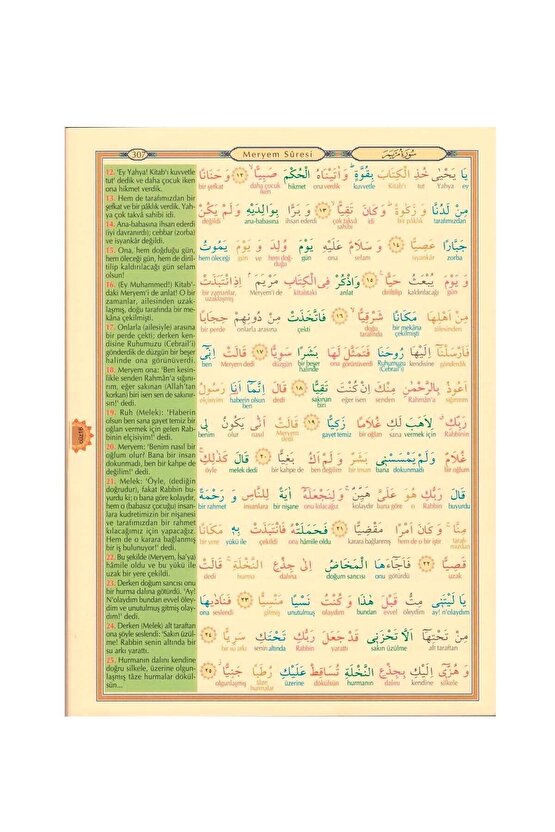 307
Meryem Sûresi
سورة مريم
12. 'Ey Yahya! Kitab'ı kuvvetle
tut' dedik ve daha çocuk iken
ona hikmet verdik.
13. Hem de tarafımızdan bir
şefkat ve bir pâklık verdik. Yah-
ya çok takvâ sahibi idi.
14. Ana-babasına ihsan ederdi
(iyi davranırdı); cebbar (zorba)
ve isyankâr değildi.
15. Ona, hem doğduğu gün,
hem öleceği gün, hem de diril-
tilip kaldırılacağı gün selam
olsun!
16. (Ey Muhammed!) Kitab'-
daki Meryem'i de anlat! O bir
zamanlar, ailesinden uzak-
laşmış, doğu tarafında bir me-
kâna çekilmişti.
17. Onlarla (ailesiyle) arasına
bir perde çekti; derken ken-
disine Ruhumuzu (Cebrail'i)
gönderdik de düzgün bir beşer
halinde ona görünüverdi.
18. Meryem ona: 'Ben kesin-
likle senden Rahmân'a sığını-
rım, eğer sakınan (Allah'tan
korkan) biri isen sen de sakınır-
sın!' dedi.
19. Ruh (Melek): 'Haberin
olsun ben sana gayet temiz bir
oğlan vermek için gelen Rab-
binin elçisiyim!' dedi.
20. Meryem: 'Benim nasıl bir
oğlum olur! Bana bir insan
dokunmadı, ben bir kahpe de
değilim!' dedi.
21. Melek: 'Öyle, (dediğin
doğrudur), fakat Rabbin bu-
yurdu ki; o bana göre kolaydır,
hem o (babasız çocuğu) insan-
lara kudretimizin bir nişanesi
ve tarafımızdan bir rahmet
kılacağımız için yapacağız.
Hem de o karara bağlanmış
bir iş bulunuyor!' dedi.
22. Bu şekilde (Meryem, İsa'ya)
hâmile oldu ve bu yükü ile
uzak bir yere çekildi.
23. Derken doğum sancısı onu
bir hurma dalına götürdü. 'Ay!
N'olaydım bundan evvel öley-
dim ve unutulmuş gitmiş olay-
dım!' dedi.
24. Derken (Melek) alt taraftan
ona şöyle seslendi: 'Sakın üzül-
me! Rabbin senin altında bir
su arkı yarattı.
25. Hurmanın dalını kendine
doğru silkele, üzerine olgun-
laşmış tâze hurmalar dökül-
sün...
يَا يَحْيٰى خُذِ الْكِتَابَ بِقُوَّةٍ وَ اٰتَيْنَاهُ الْحُكْمَ صَبِيًّا ﴿١٢﴾ وَ حَنَانًا
bir şefkat daha çocuk iken hikmet ona verdik kuvvetle Kitab'ı tut Yahya ey
مِنْ لَدُنَّا وَ زَكٰوةً وَ كَانَ تَقِيًّا ﴿١٣﴾ وَ بَرًّا بِوَالِدَيْهِ وَ لَمْ يَكُنْ
değildi ana-babasına ihsan ederdi çok takvâ sahibi idi bir pâklık tarafımızdan
جَبَّارًا عَصِيًّا ﴿١٤﴾ وَ سَلَامٌ عَلَيْهِ يَوْمَ وُلِدَ وَ يَوْمَ يَمُوتُ
hem öleceği gün ve hem doğ-duğu gün ona selam isyankâr zorba
وَ يَوْمَ يُبْعَثُ حَيًّا ﴿١٥﴾ وَاذْكُرْ فِي الْكِتَابِ مَرْيَمَ اِذِ انْتَبَذَتْ
bir zamanlar, uzaklaşmış Meryem'i de kitabtaki anlat diriltilip kaldırılacağı gün
مِنْ اَهْلِهَا مَكَانًا شَرْقِيًّا ﴿١٦﴾ فَاتَّخَذَتْ مِنْ دُونِهِمْ حِجَابًا
bir perde onlarla arasına çekti doğu tarafında bir mekâna çekilmişti ailesinden
فَاَرْسَلْنَا اِلَيْهَا رُوحَنَا فَتَمَثَّلَ لَهَا بَشَرًا سَوِيًّا ﴿١٧﴾ قَالَتْ اِنّٖي
ben Meryem dedi düzgün bir beşer halinde ona görünüverdi Ruhumuzu (Cebrail'i) kendisine gönderdik
اَعُوذُ بِالرَّحْمٰنِ مِنْكَ اِنْ كُنْتَ تَقِيًّا ﴿١٨﴾ قَالَ اِنَّمَا اَنَا رَسُولُ
elçisiyim ben haberin olsun dedi sakınan biri eğer isen sen senden Rahmân'a sığınırım
رَبِّكِ لِاَهَبَ لَكِ غُلَامًا زَكِيًّا ﴿١٩﴾ قَالَتْ اَنّٰى يَكُونُ لٖي
benim olur nasıl Meryem dedi gayet temiz bir oğlan sana vermek için Rabbinin
غُلَامٌ وَ لَمْ يَمْسَسْنٖي بَشَرٌ وَ لَمْ اَكُ بَغِيًّا ﴿٢٠﴾ قَالَ كَذٰلِكِ
öyle melek dedi bir kahpe de ben değilim bir insan bana dokunmadı bir oğlum
قَالَ رَبُّكِ هُوَ عَلَيَّ هَيِّنٌ وَ لِنَجْعَلَهُ اٰيَةً لِلنَّاسِ وَ رَحْمَةً
bir rahmet insanlara bir nişanesi onu kılacağız kolaydır bana göre o Rabbin buyurdu
مِنَّا وَ كَانَ اَمْرًا مَقْضِيًّا ﴿٢١﴾ فَحَمَلَتْهُ فَانْتَبَذَتْ بِهٖ مَكَانًا
bir yere yükü ile çekildi ona hâmile oldu karara bağlanmış hem de o bir iştir tarafımızdan
قَصِيًّا ﴿٢٢﴾ فَاَجَاءَهَا الْمَخَاضُ اِلٰى جِذْعِ النَّخْلَةِ قَالَتْ
dedi hurma dalına doğum sancısı onu götürdü uzak
يَا لَيْتَنٖي مِتُّ قَبْلَ هٰذَا وَ كُنْتُ نَسْيًا مَنْسِيًّا ﴿٢٣﴾ فَنَادٰيهَا
ona seslendi gitmiş unutulmuş olaydım bundan evvel öleydim ay! n'olaydım
مِنْ تَحْتِهَا اَلَّا تَحْزَنٖي قَدْ جَعَلَ رَبُّكِ تَحْتَكِ سَرِيًّا ﴿٢٤﴾
bir su arkı senin altında Rabbin yarattı sakın üzülme alt taraftan
وَ هُزّٖي اِلَيْكِ بِجِذْعِ النَّخْلَةِ تُسَاقِطْ عَلَيْكِ رُطَبًا جَنِيًّا ﴿٢٥﴾
olgunlaşmış tâze hurmalar üzerine dökülsün hurmanın dalını kendine silkele